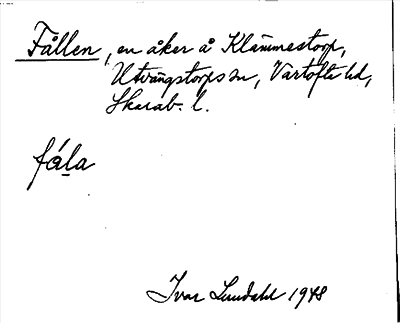 Fållen, en åker å Klämmestorp,
Utvängstorps sn, Vartofta hd,
Skarab. l.
fá̱la
Ivar Lundahl 1948